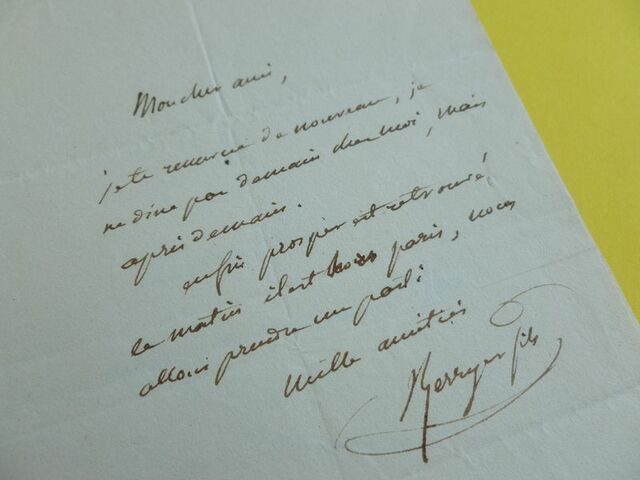 Mon cher ami,
je te remercie de nouveau, je
ne dine pas demain chez moi, mais
après demain.
enfin prosper est retrouvé
le matin il est hors paris, nous
allons prendre un parti
mille amitiés
Berryer fils